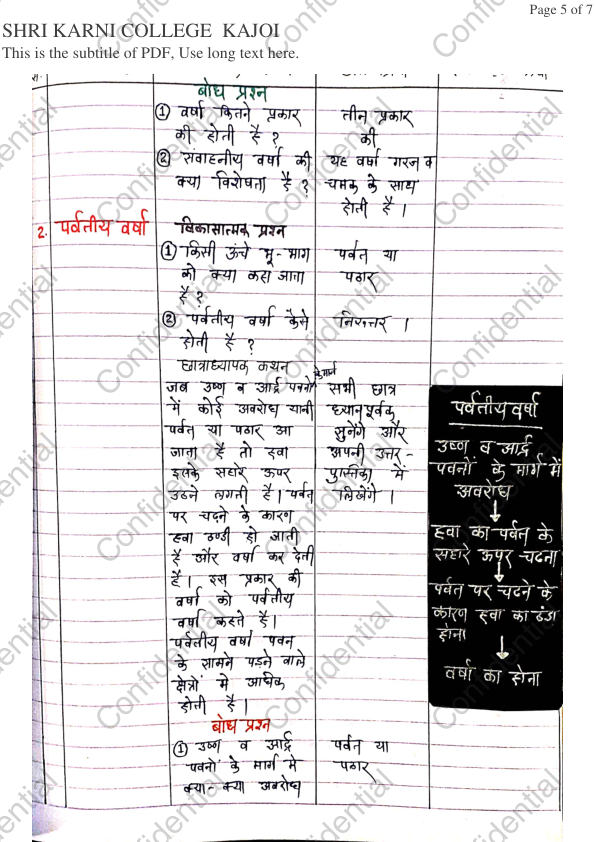 Page 5 of 7
SHRI KARNI COLLEGE KAJOI
This is the subtitle of PDF, Use long text here.
बोध प्रश्न
① वर्षा कितने प्रकार
की होती है ?
तीन प्रकार
की
② संवाहनीय वर्षा की
क्या विशेषता है ?
यह वर्षा गरज व
चमक के साथ
होती है ।
2. पर्वतीय वर्षा
विकासात्मक प्रश्न
① किसी ऊंचे भू-भाग
को क्या कहा जाता
है ?
पर्वत या
पठार
② पर्वतीय वर्षा कैसे
होती है ?
निरुत्तर ।
छात्राध्यापक कथन
के मार्ग
जब उष्ण व आर्द्र पवनों
में कोई अवरोध यानी
पर्वत या पठार आ
जाता है तो हवा
इसके सहारे ऊपर
उठने लगती है। पर्वत
पर चढ़ने के कारण
हवा ठण्डी हो जाती
है और वर्षा कर देती
है। इस प्रकार की
वर्षा को पर्वतीय
वर्षा कहते है।
पर्वतीय वर्षा पवन
के सामने पड़ने वाले
क्षेत्रों में अधिक
होती है ।
सभी छात्र
ध्यानपूर्वक
सुनेंगे और
अपनी उत्तर-
पुस्तिका में
लिखेंगे ।
पर्वतीय वर्षा
उष्ण व आर्द्र
पवनों के मार्ग में
अवरोध
↓
हवा का पर्वत के
सहारे ऊपर चढना
↓
पर्वत पर चढने के
कारण हवा का ठंडा
होना
↓
वर्षा का होना
बोध प्रश्न
① उष्ण व आर्द्र
पवनों के मार्ग में
क्या-क्या अवरोध
पर्वत या
पठार
Confidential